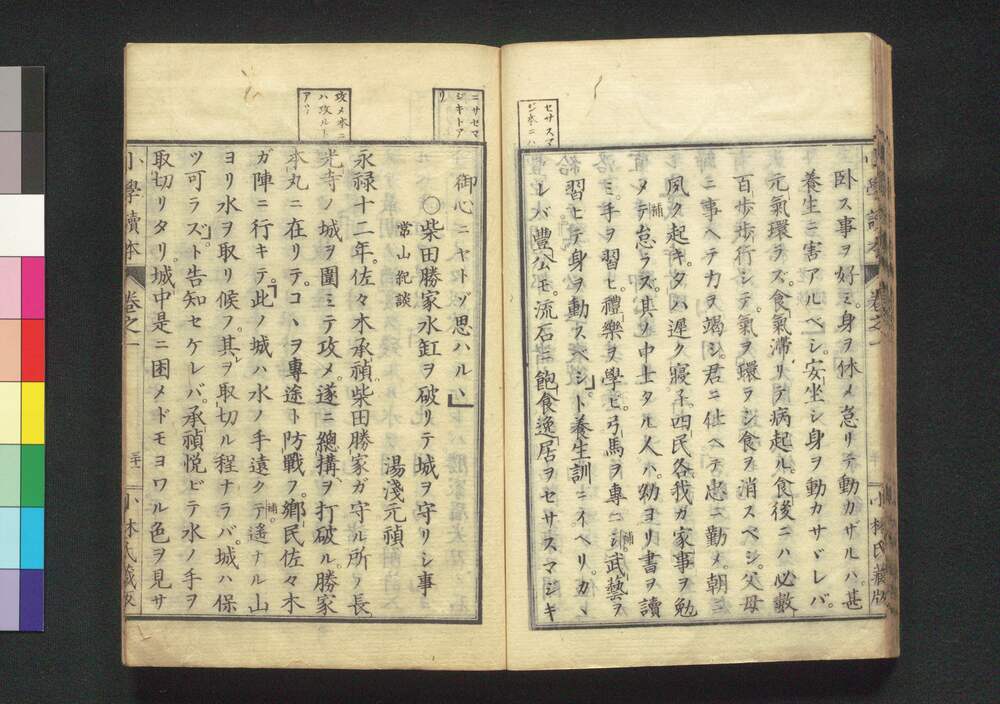 セサスマ
ジ本ニハ
臥ス事ヲ好ミ。身ヲ休メ怠リテ動カザルハ。甚
養生ニ害アルベシ。安坐シ身ヲ動カサヾレバ。
元氣環ラズ。食氣滯リテ病起ル。食後ニハ必數
百歩歩行シテ。氣ヲ環ラシ食ヲ消スベシ。父母
ニ事ヘテ力ヲ竭シ。君ニ仕ヘテ忠ニ勤メ。朝ニ
夙ク起キ。夕ハ遲ク寢子。四民各我ガ家事ヲ勉
メテ怠ラズ。其ノ中士タル人ハ。幼ヨリ書ヲ讀
ミ。手ヲ習ヒ。禮樂ヲ學ビ。弓馬ヲ專ニシ。武藝ヲ
習ヒテ身ヲ動スベシ。ト養生訓ニイヘリ。カヽ
レバ豐公モ。流石ニ飽食逸居ヲセサスマジキ
ニサセマ
ジキトア
リ
攻メ本ニ
ハ攻ルト
アリ
御心ニヤトゾ思ハルヽ」
〇柴田勝家水缸ヲ破リテ城ヲ守リシ事
常山紀談
湯淺元禎
永禄十二年。佐々木承禎柴田勝家ガ守ル所ノ長
光寺ノ城ヲ圍ミテ攻メ。遂ニ總搆ヲ打破ル。勝家
本丸ニ在リテ。コヽヲ專途ト防戰フ。鄕民佐々木
ガ陣ニ行キテ。此ノ城ハ水ノ手遠クテ遙ナル山
ヨリ水ヲ取リ候フ。其ヲ取切ル程ナラバ。城ハ保
ツ可ラズ。ト告知セケレバ。承禎悅ビテ水ノ手ヲ
取切リタリ。城中是ニ困メドモヨワル色ヲ見サ
小學讀本
卷之一
小林氏藏版